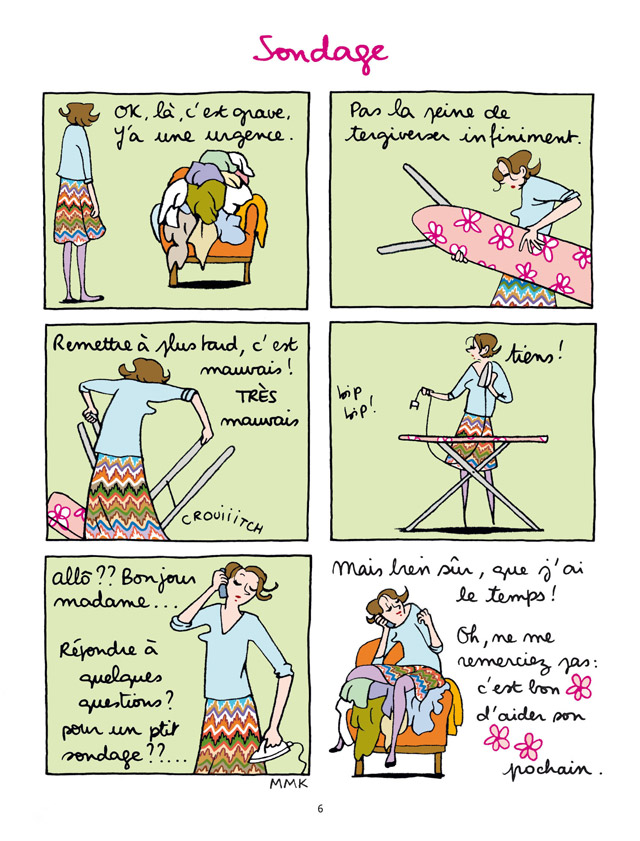 Sondage
OK, là, c'est grave.
Y'a une urgence.
Pas la peine de
tergiverser infiniment.
Remettre à plus tard, c'est
mauvais !
TRÈS
mauvais
CROUIIITCH
tiens !
bip
bip !
allô ?? Bonjour
madame...
Répondre à
quelques
questions ?
pour un ptit
sondage ??....
MMK
Mais bien sûr, que j'ai
le temps !
Oh, ne me
remerciez pas :
c'est bon
d'aider son
pochain.
6